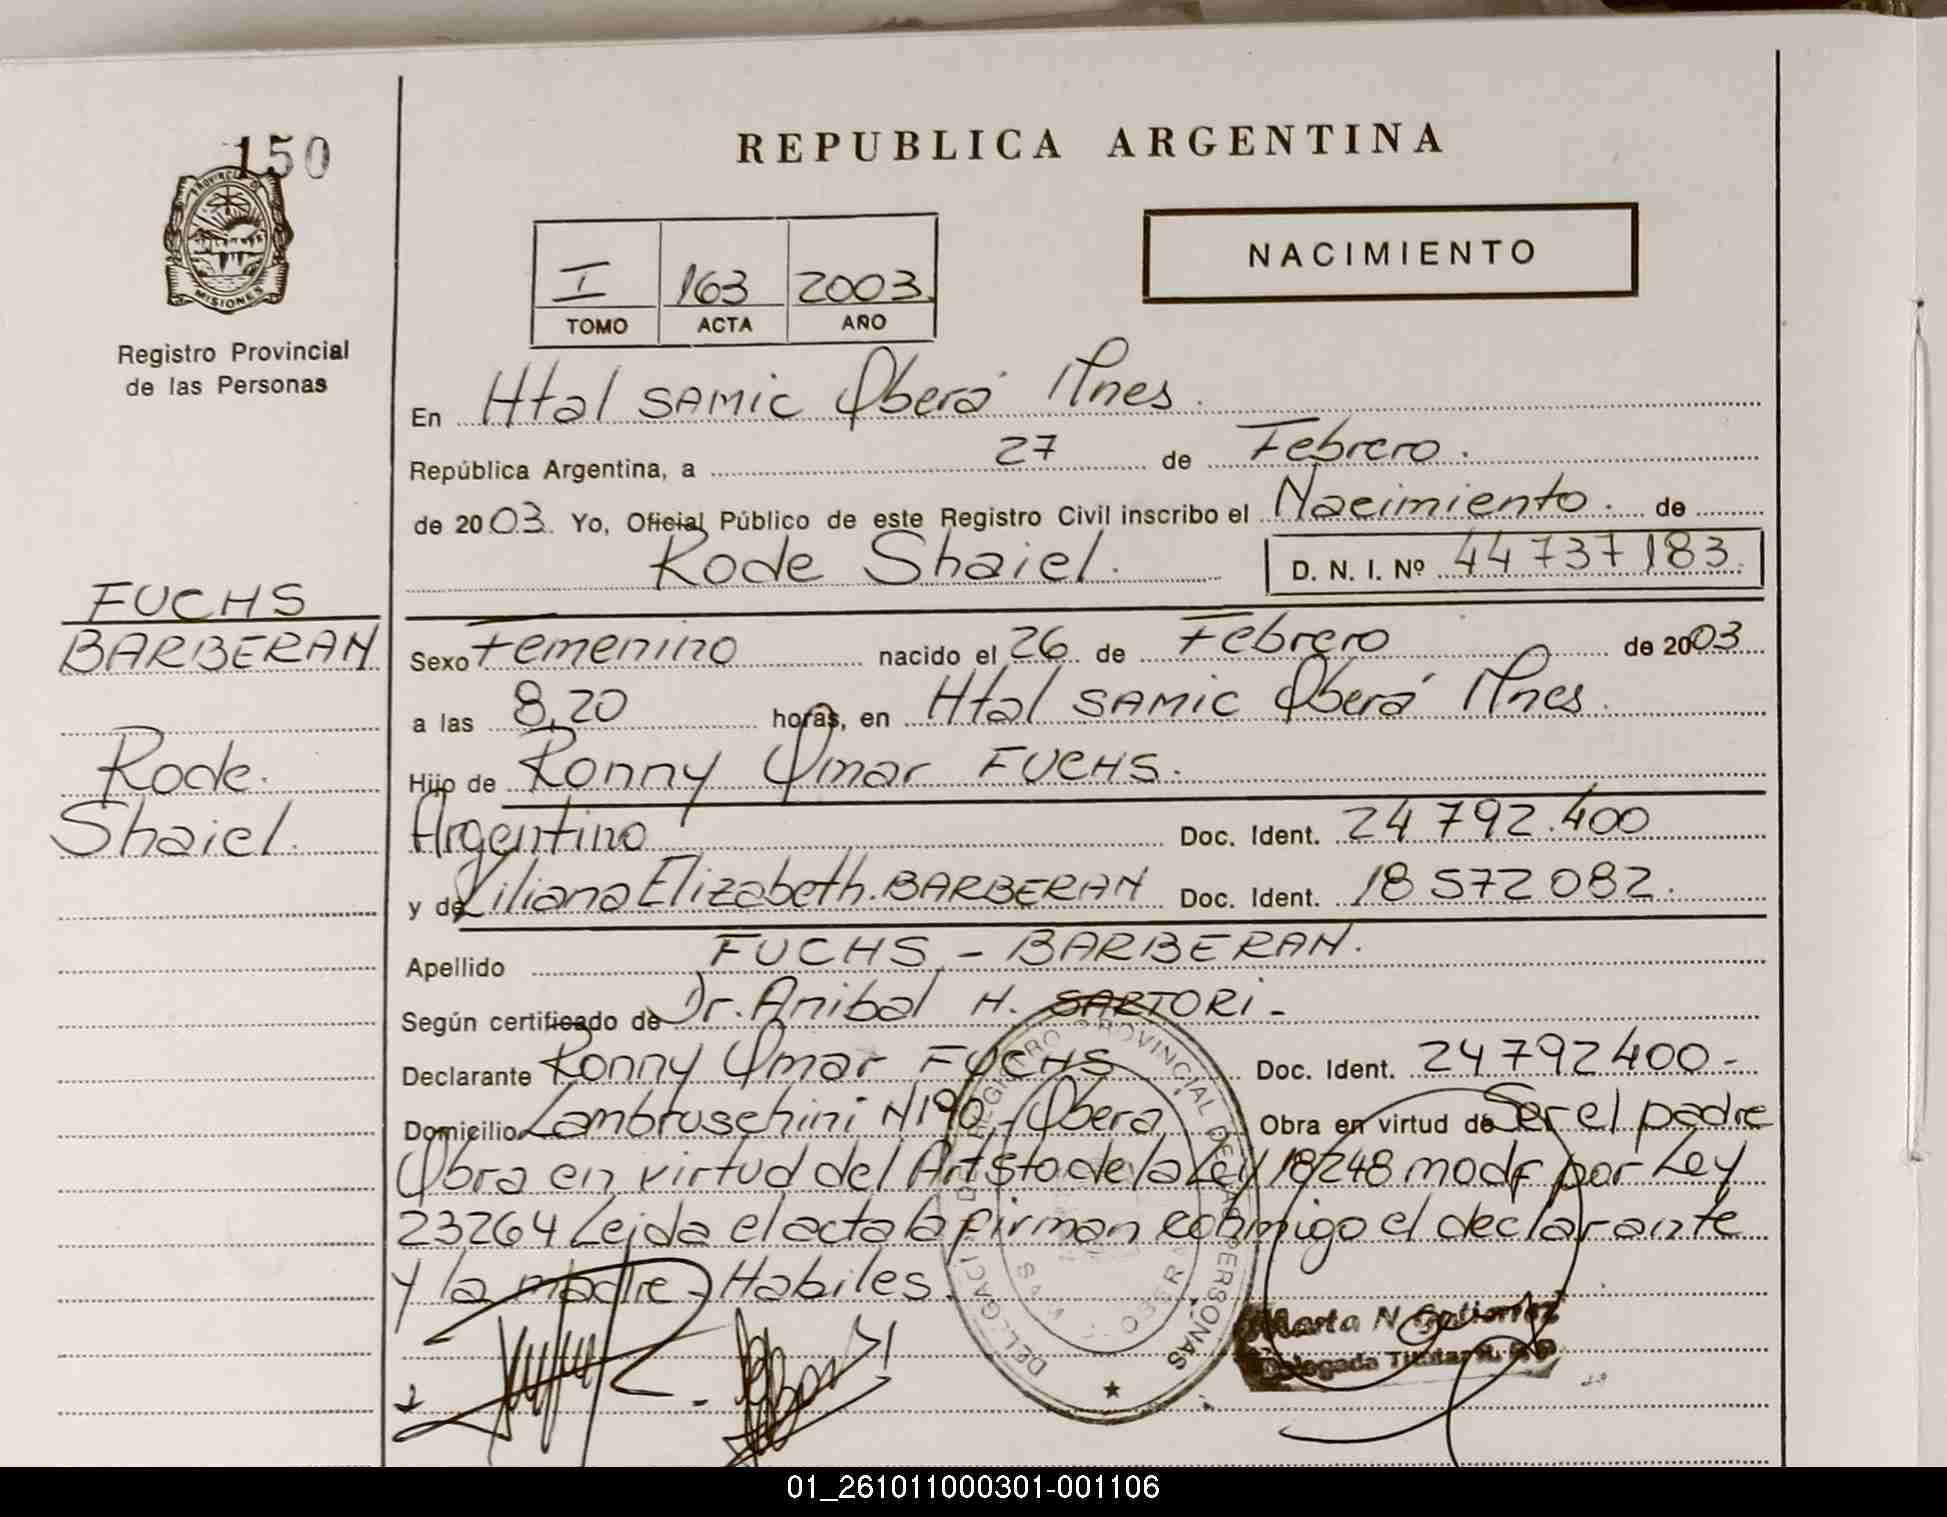 150
PROVINCIA DE
MISIONES
Registro Provincial
de las Personas
REPUBLICA ARGENTINA
NACIMIENTO
I 163 2003.
TOMO ACTA AÑO
En Htal SAMIC Oberá Mnes.
República Argentina, a 27 de Febrero.
de 2003. Yo, Oficial Público de este Registro Civil inscribo el Nacimiento. de
Rode Shaiel. D. N. I. Nº 44737183.
FUCHS
BARBERAN
Rode.
Shaiel.
Sexo Femenino nacido el 26 de Febrero de 2003
a las 8,20 horas, en Htal SAMIC Oberá Mnes.
Hijo de Ronny Omar FUCHS.
Argentino Doc. Ident. 24 792.400
y de Liliana Elizabeth. BARBERAN Doc. Ident. 18 572 082.
Apellido FUCHS - BARBERAN.
Según certificado de Dr. Anibal H. SARTORI -
Declarante Ronny Omar FUCHS Doc. Ident. 24792400-
Domicilio Lambruschini N190 - Obera Obra en virtud de Ser el padre
Obra en virtud del Art 5to de la Ley 18248 modf por Ley
23264 Leida el acta la firman conmigo el declarante
y la madre - Habiles.
REGISTRO PROVINCIAL DE LAS PERSONAS
Marta N. Gutierrez
Delegada Titular R. P. P.
01_261011000301-001106